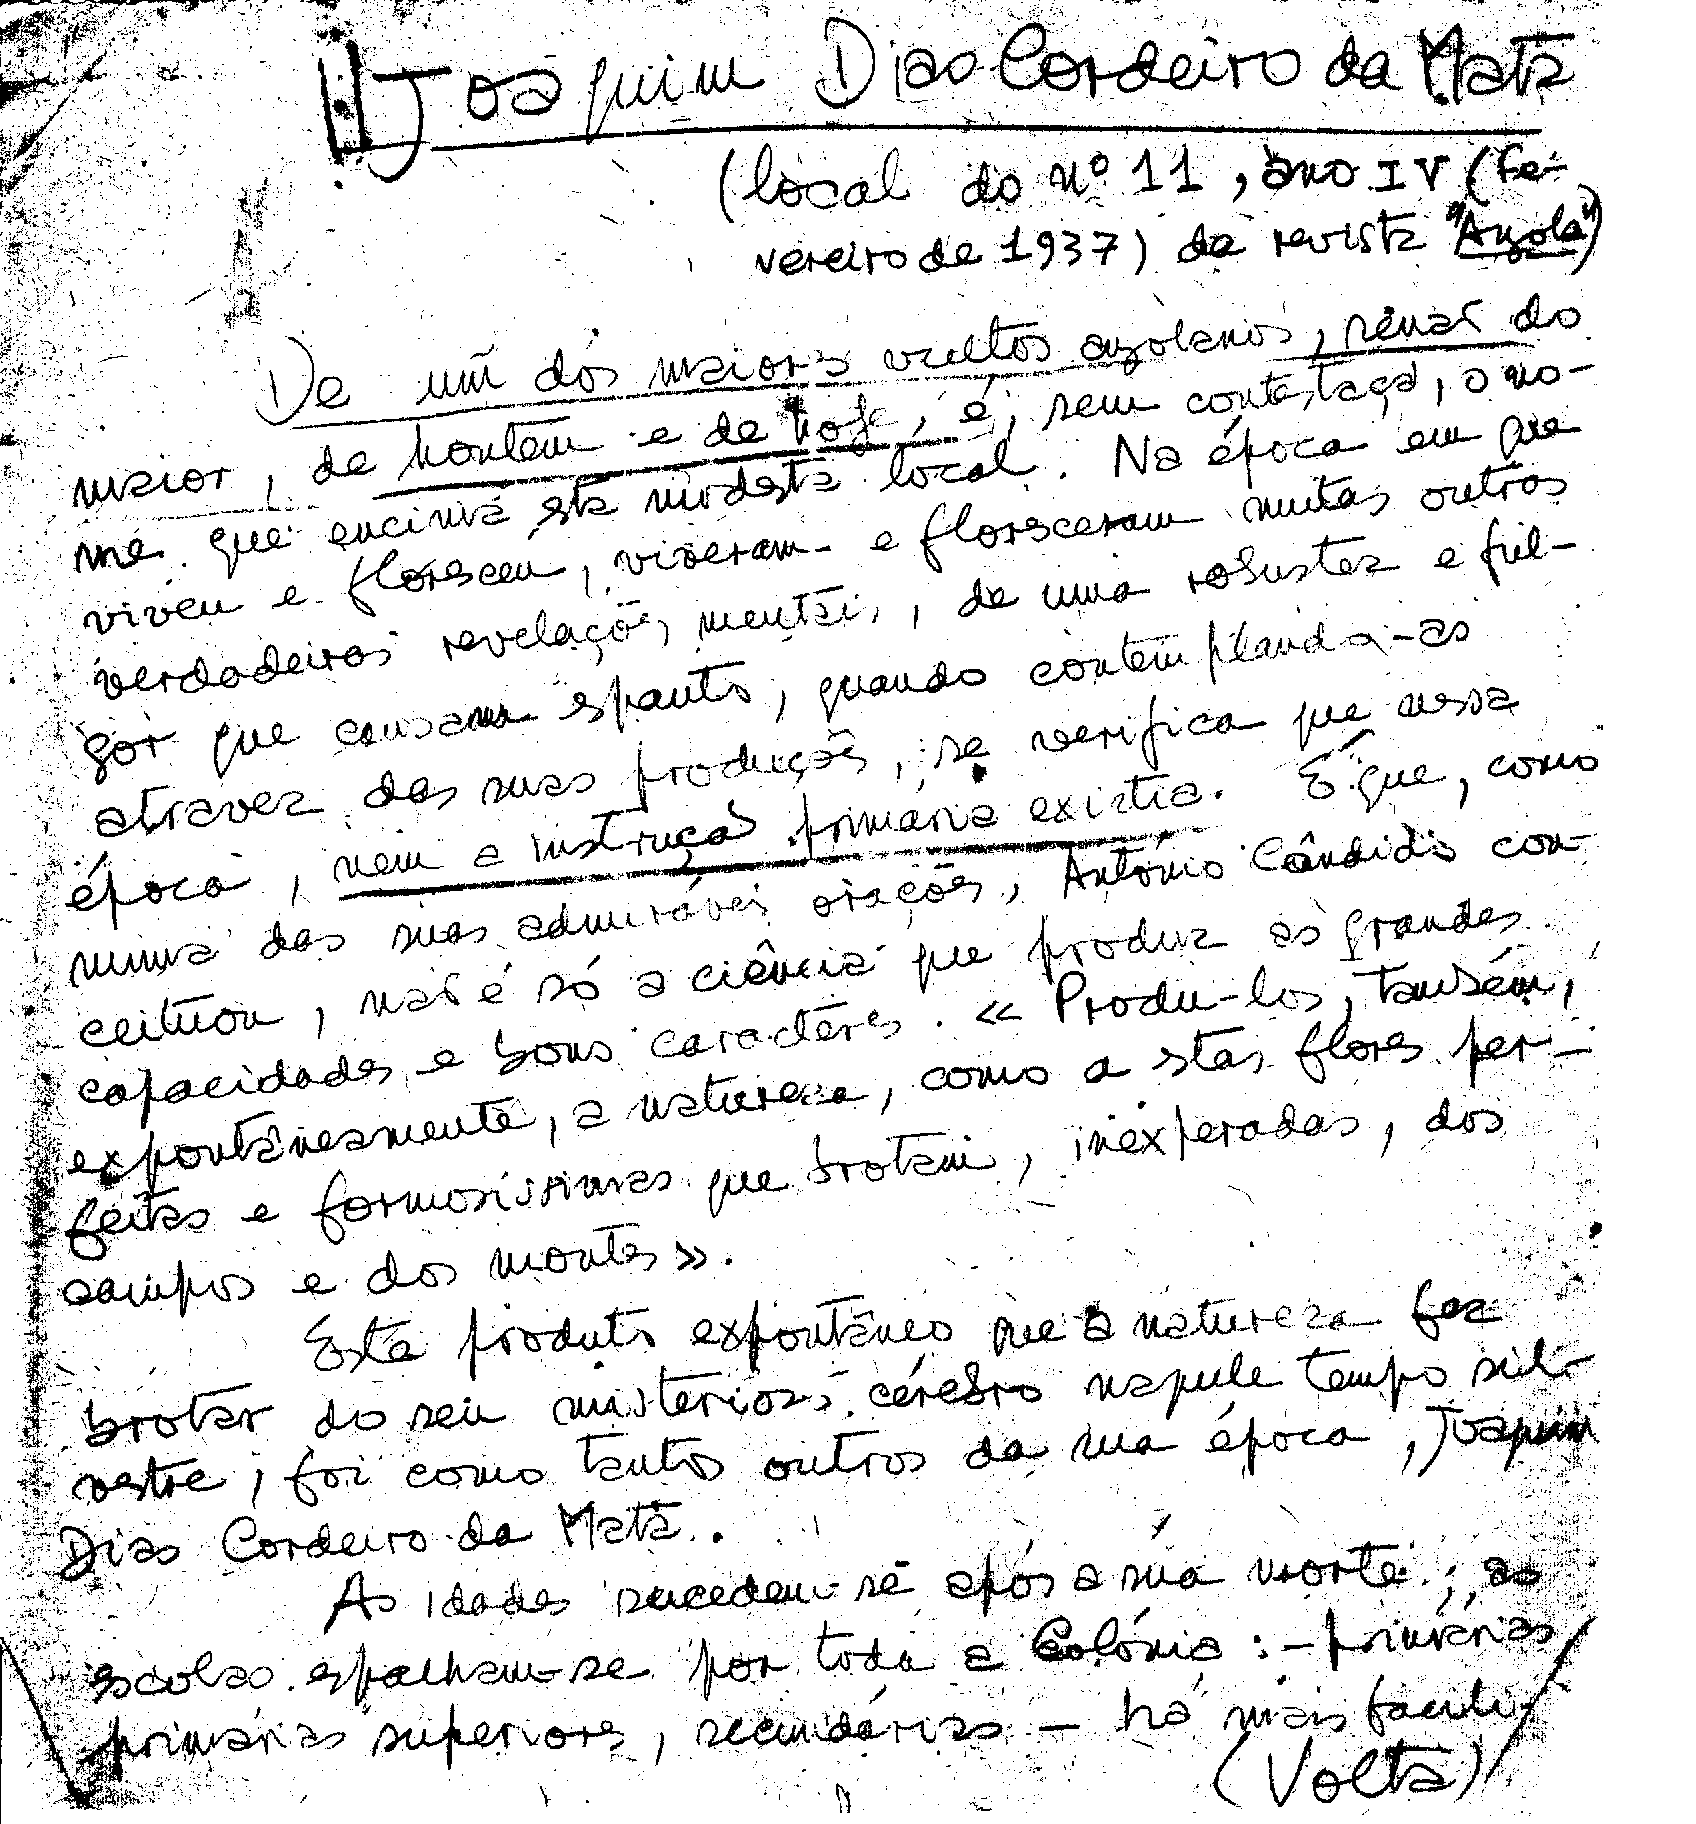 Joaquim Dias Cordeiro da Mata
(local do nº 11, ano IV (Fe-
vereiro de 1937) da revista "Angola")
De um dos maiores vultos angolanos, senão do
maior, de hontem e de hoje, é, sem contestação, o no-
me que encima esta modesta local. Na época em que
viveu e floresceu, viveram e floresceram muitas outras
verdadeiras revelações mentais, de uma robustez e ful-
gor que causam espanto, quando contemplando-as
atravez das suas produções, se verifica que nessa
época, nem a instrução primária existia. É que, como
numa das suas admiráveis orações, António Cândido con-
ceituou, não é só a ciência que produz as grandes
capacidades e bons caracteres. « Produ-los, também,
expontâneamente, a natureza, como a estas flores per-
feitas e formosíssimas que brotam, inexperadas, dos
campos e dos montes ».
Este produto expontâneo que a natureza fez
brotar do seu misterioso cérebro naquele tempo sil-
vestre, foi como tantos outros da sua época, Joaquim
Dias Cordeiro da Mata.
As idades sucedem-se após a sua morte; as
escolas espalham-se por toda a Colónia: - primárias
primárias superiores, secundárias - há mais facili-
(Volta)